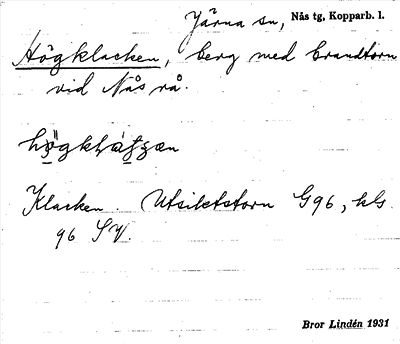 Järna sn, Nås tg, Kopparb. l.
Högklacken, berg med brandtorn
vid Nås rå.
Klacken. Utsiktstorn G96, bls
96 SV.
Bror Lindén 1931